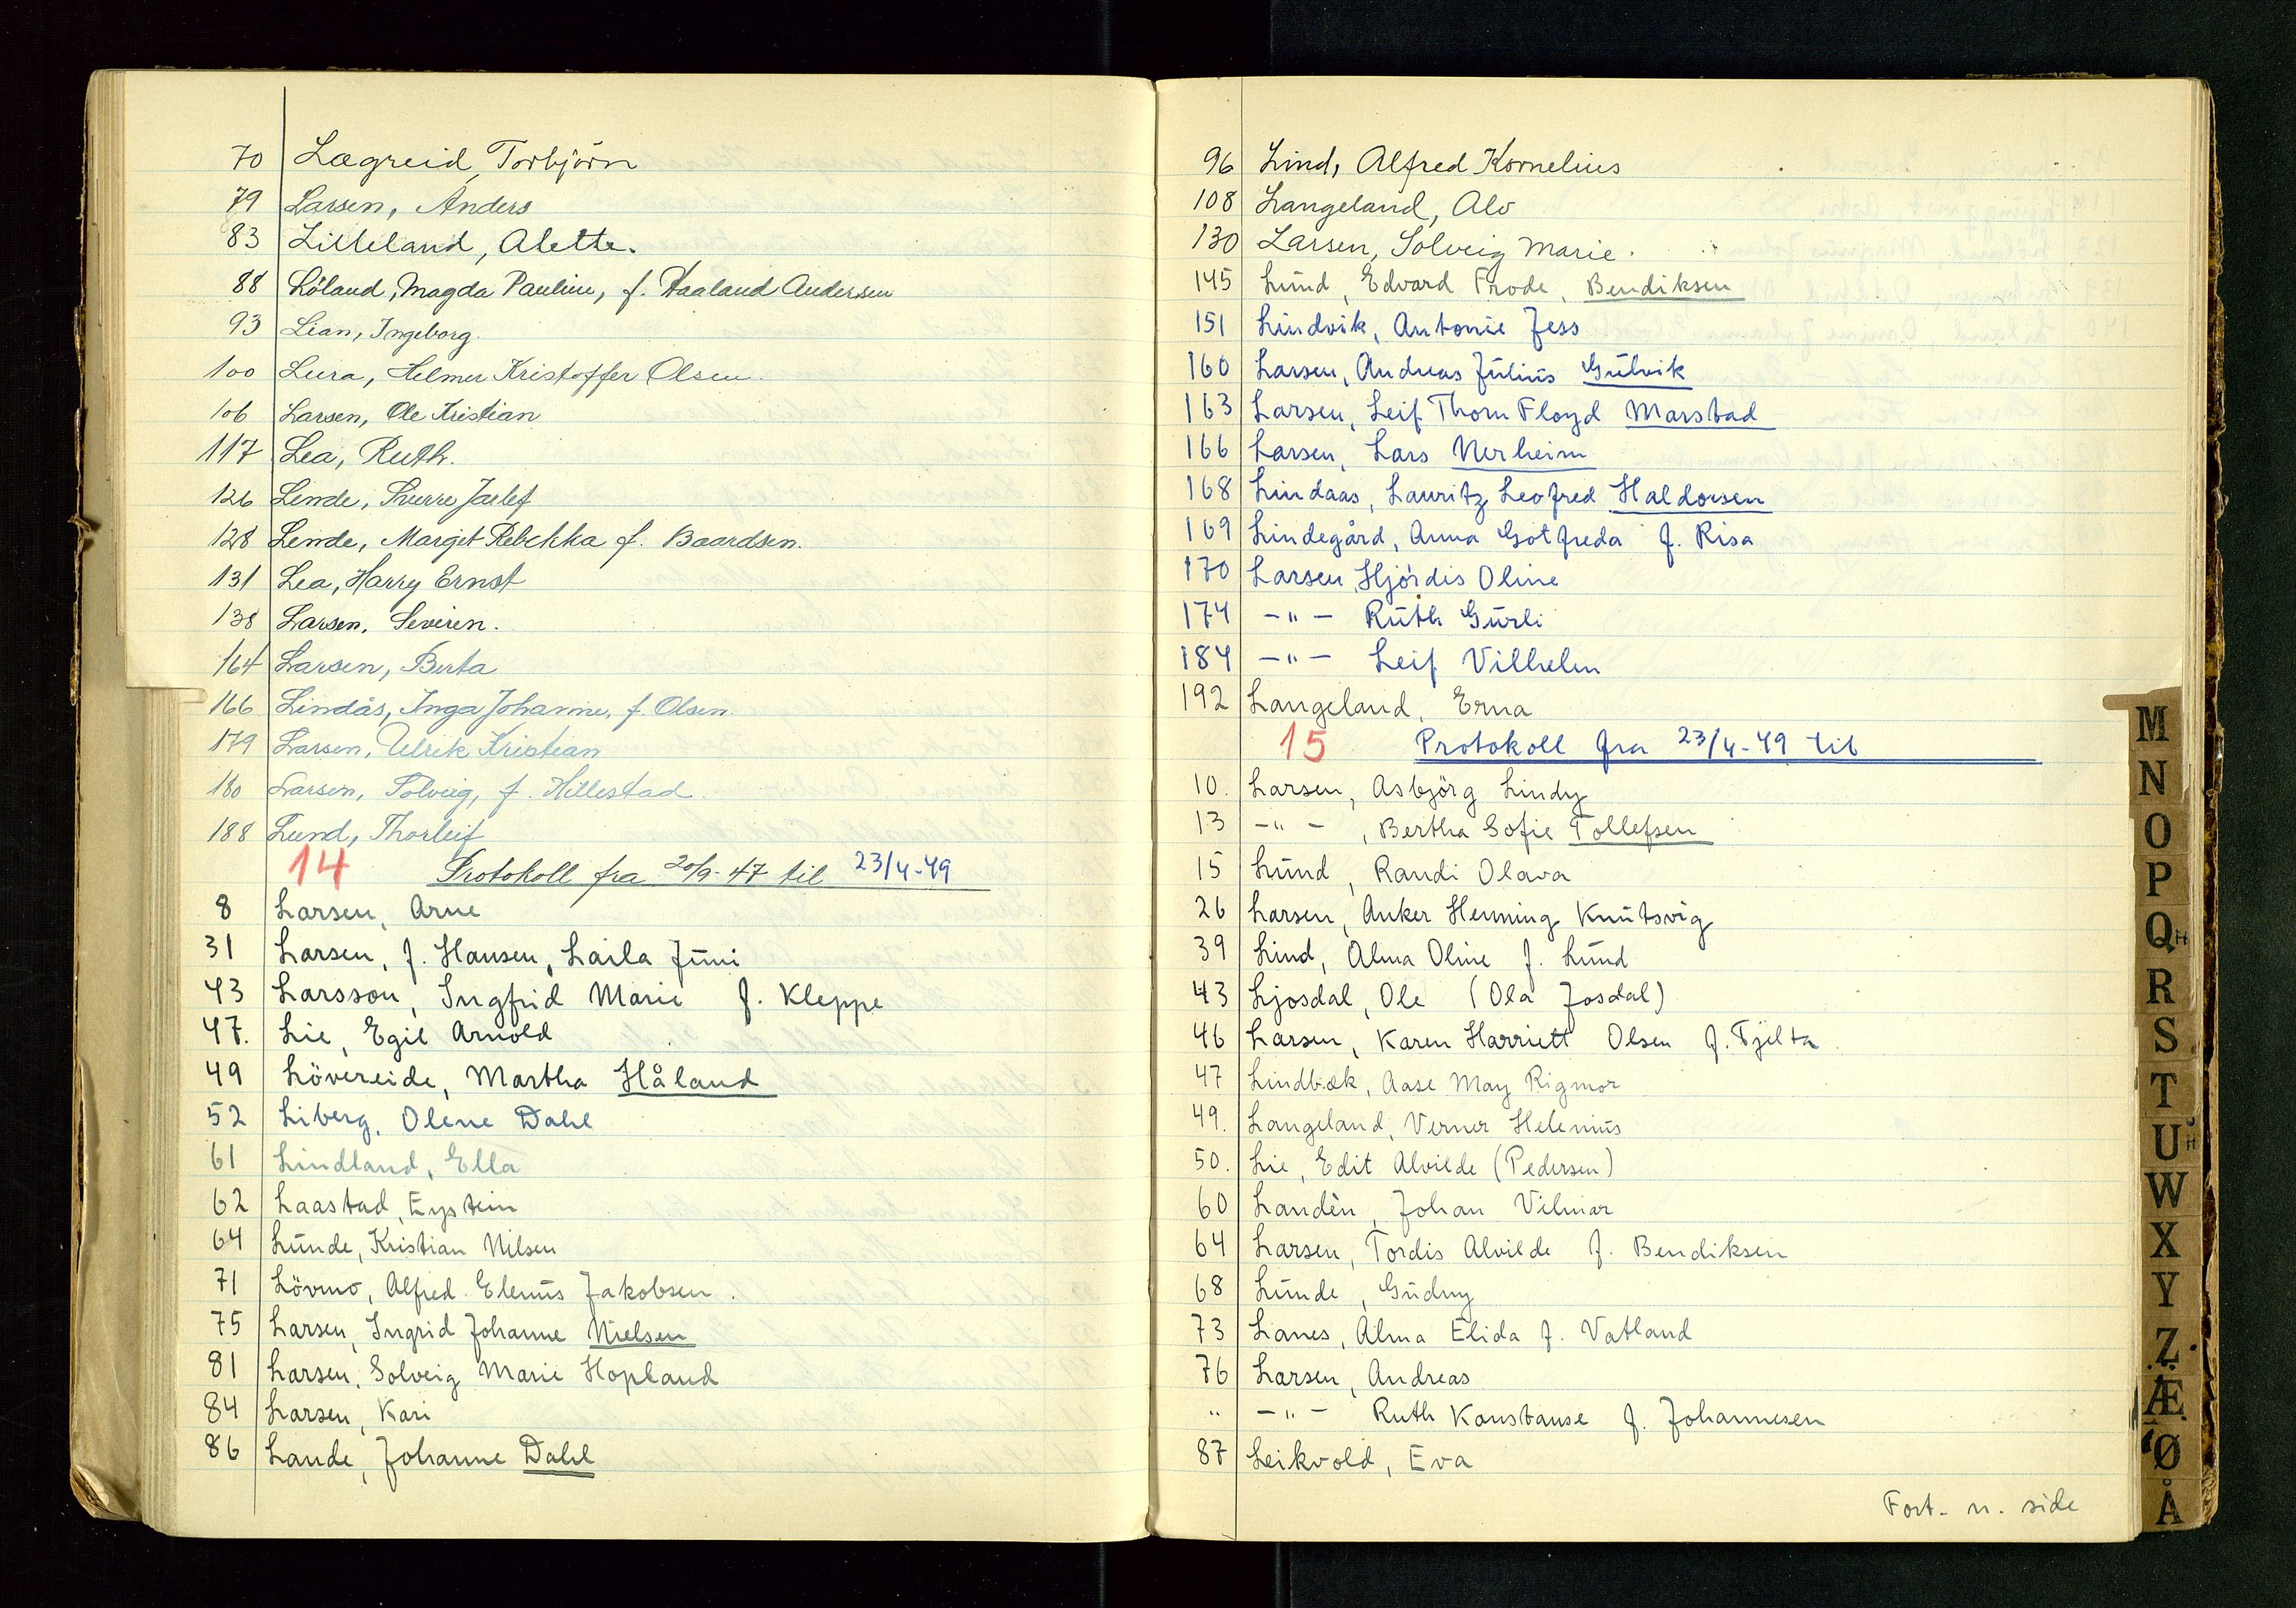 70 Lægreid, Torbjörn
79 Larsen, Anders
83 Lilleland, Alette.
88 Löland, Magda Pauline, f. Haaland Andersen
93 Lian, Ingeborg.
100 Lura, Helmer Kristoffer Olsen.
106 Larsen, Ole Kristian
117 Lea, Ruth.
126 Lende, Sverre Jarlef
128 Lende, Margit Rebekka f. Baardsen.
131 Lea, Harry Ernst
138 Larsen, Severin.
164 Larsen, Berta
166 Lindås, Inga Johanne, f. Olsen.
179 Larsen, Ulrik Kristian
180 Larsen, Solveig, f. Hillestad.
188 Lund, Thorleif
14 Protokoll fra 20/9-47 til 23/4-49
8 Larsen, Arne
31 Larsen, f. Hansen, Laila Juni
43 Larsson, Ingfrid Marie f. Kleppe
47. Lie, Egil Arnold
49 Lövereide, Martha Håland
52 Liberg, Olene Dahl
61 Lindland, Ella
62 Laastad, Eystein
64 Lunde, Kristian Nilsen
71 Lövmo, Alfred Elenus Jakobsen.
75 Larsen, Ingrid Johanne Nielsen
81 Larsen, Solveig Marie Hopland
84 Larsen, Kari
86 Lande, Johanne Dahl
96 Lind, Alfred Kornelius
108 Langeland, Alv
130 Larsen, Solveig Marie.
145 Lund, Edvard Frode, Bendiksen
151 Lindvik, Antonie Jess
160 Larsen, Andreas Julius Gulvik
163 Larsen, Leif Thorn Floyd Marstad
166 Larsen, Lars Nerheim
168 Lindaas, Lauritz Leofred Haldorsen
169 Lindegård, Anna Gotfreda f. Risa
170 Larsen, Hjördis Oline
174 -"- Ruth Gurli
184 -"- Leif Vilhelm
192 Langeland, Erna
15 Protokoll fra 23/4-49 til
10. Larsen, Asbjörg Lindy
13 -"-, Bertha Sofie Tollefsen
15 Lund, Randi Olava
26 Larsen, Anker Henning Knutsvig
39 Lind, Alma Oline f. Lund
43 Ljosdal, Ole (Ola Josdal)
46 Larsen, Karen Harriett Olsen f. Tjelta
47 Lindbæk, Aase May Rigmor
49. Langeland, Verner Helenius
50. Lie, Edit Alvilde (Pedersen)
60 Landèn, Johan Vilmar
64 Larsen, Tordis Alvilde f. Bendiksen
68 Lunde, Gudny
73 Lanes, Alma Elida f. Vatland
76 Larsen, Andreas
" -"- Ruth Konstanse f. Johannesen
87 Leikvold, Eva
Fort. n. side
M
N
O
P
Q H
R
S
T
U H
W
X
Y
Z
Æ
Ø
Å